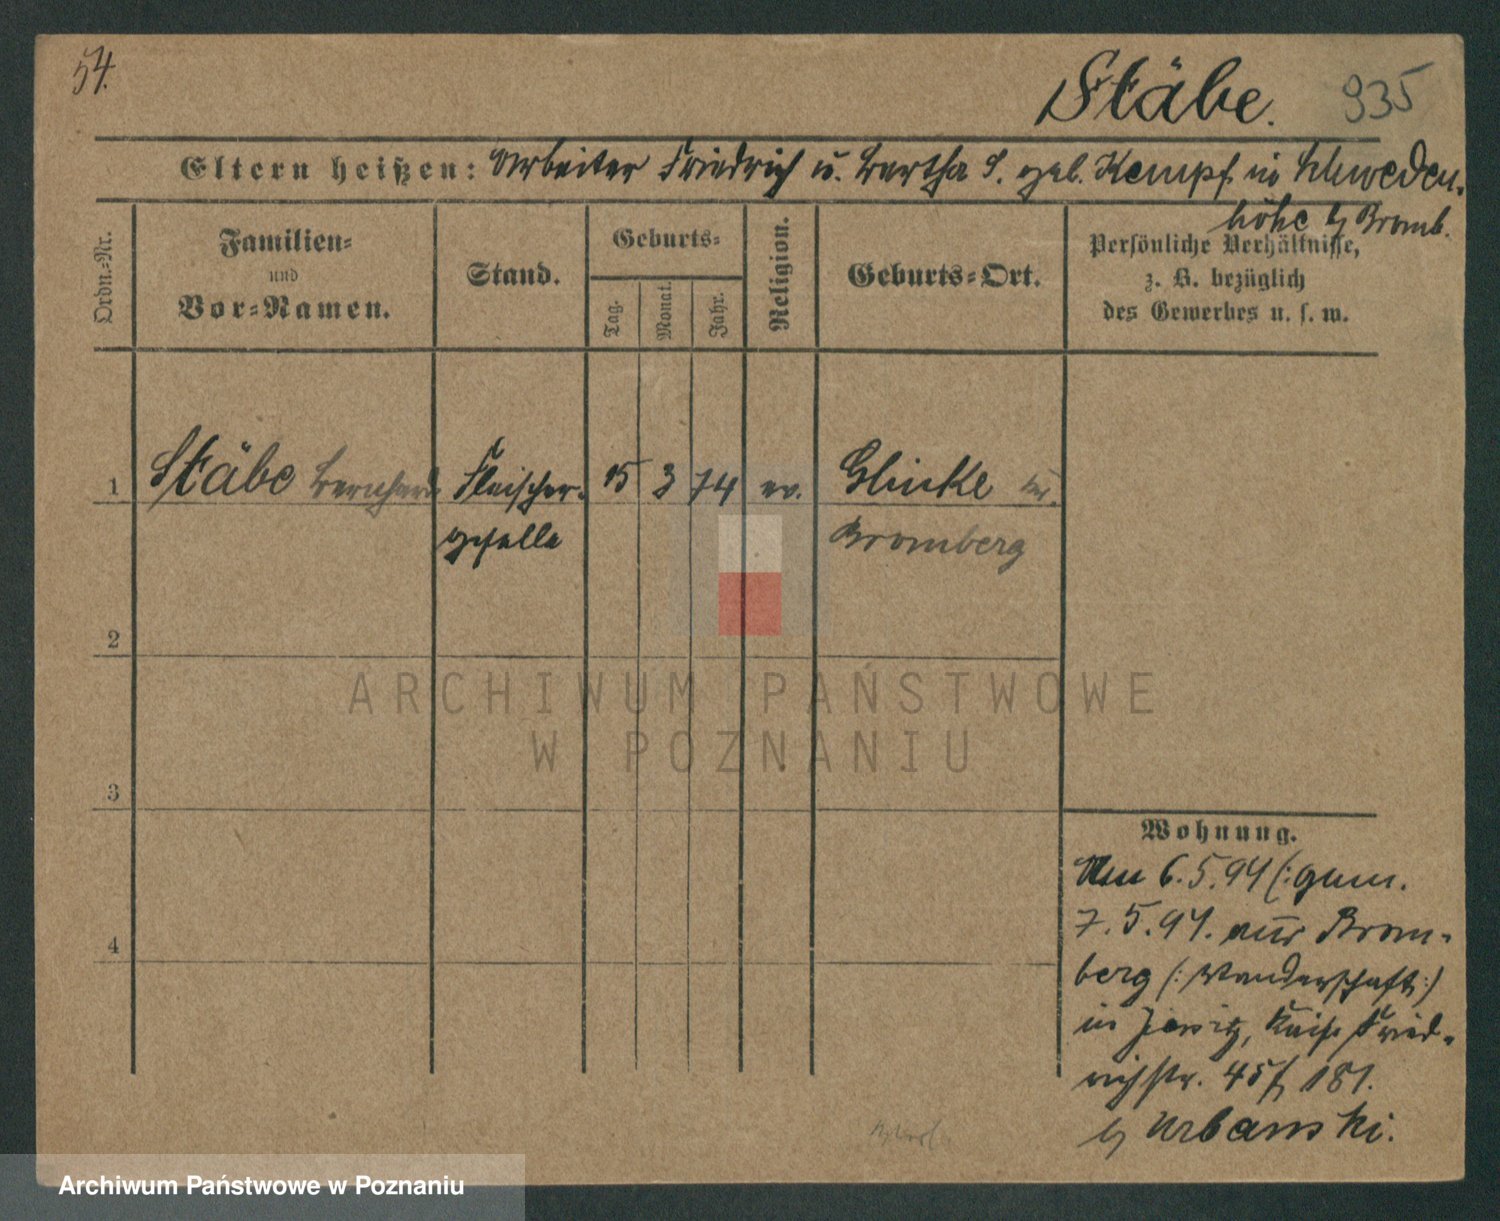 54.
Stäbe. 935
Eltern heißen: Arbeiter Friedrich u. Bertha S. geb. Kempf in Schweden-
höhe b/ Bromb.
Ordn.-Nr.
Familien-
und
Vor-Namen.
Stand.
Geburts-
Tag.
Monat.
Jahr.
Religion.
Geburts-Ort.
Persönliche Verhältnisse,
z. B. bezüglich
des Gewerbes u. s. w.
1 Stäbe Bernhard Fleischer- 15 3 74 ev. Glinke bei
geselle Bromberg
2
3
4
Wohnung.
Am 6.5.94 (: gem.
7.5.94. aus Brom-
berg (: Wanderschaft :)
in Jersitz, Kais. Fried-
richstr. 45/ 181.
b/ Urbanski.
ARCHIWUM PAŃSTWOWE
W POZNANIU
Archiwum Państwowe w Poznaniu